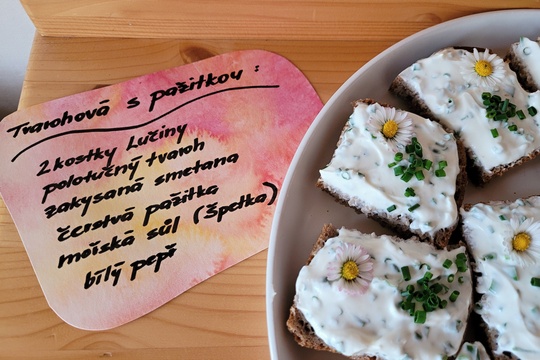 Tvarohová s pažitkou :
2 kostky Lučiny
polotučný tvaroh
zakysaná smetana
čerstvá pažitka
mořská sůl (špetka)
bílý pepř